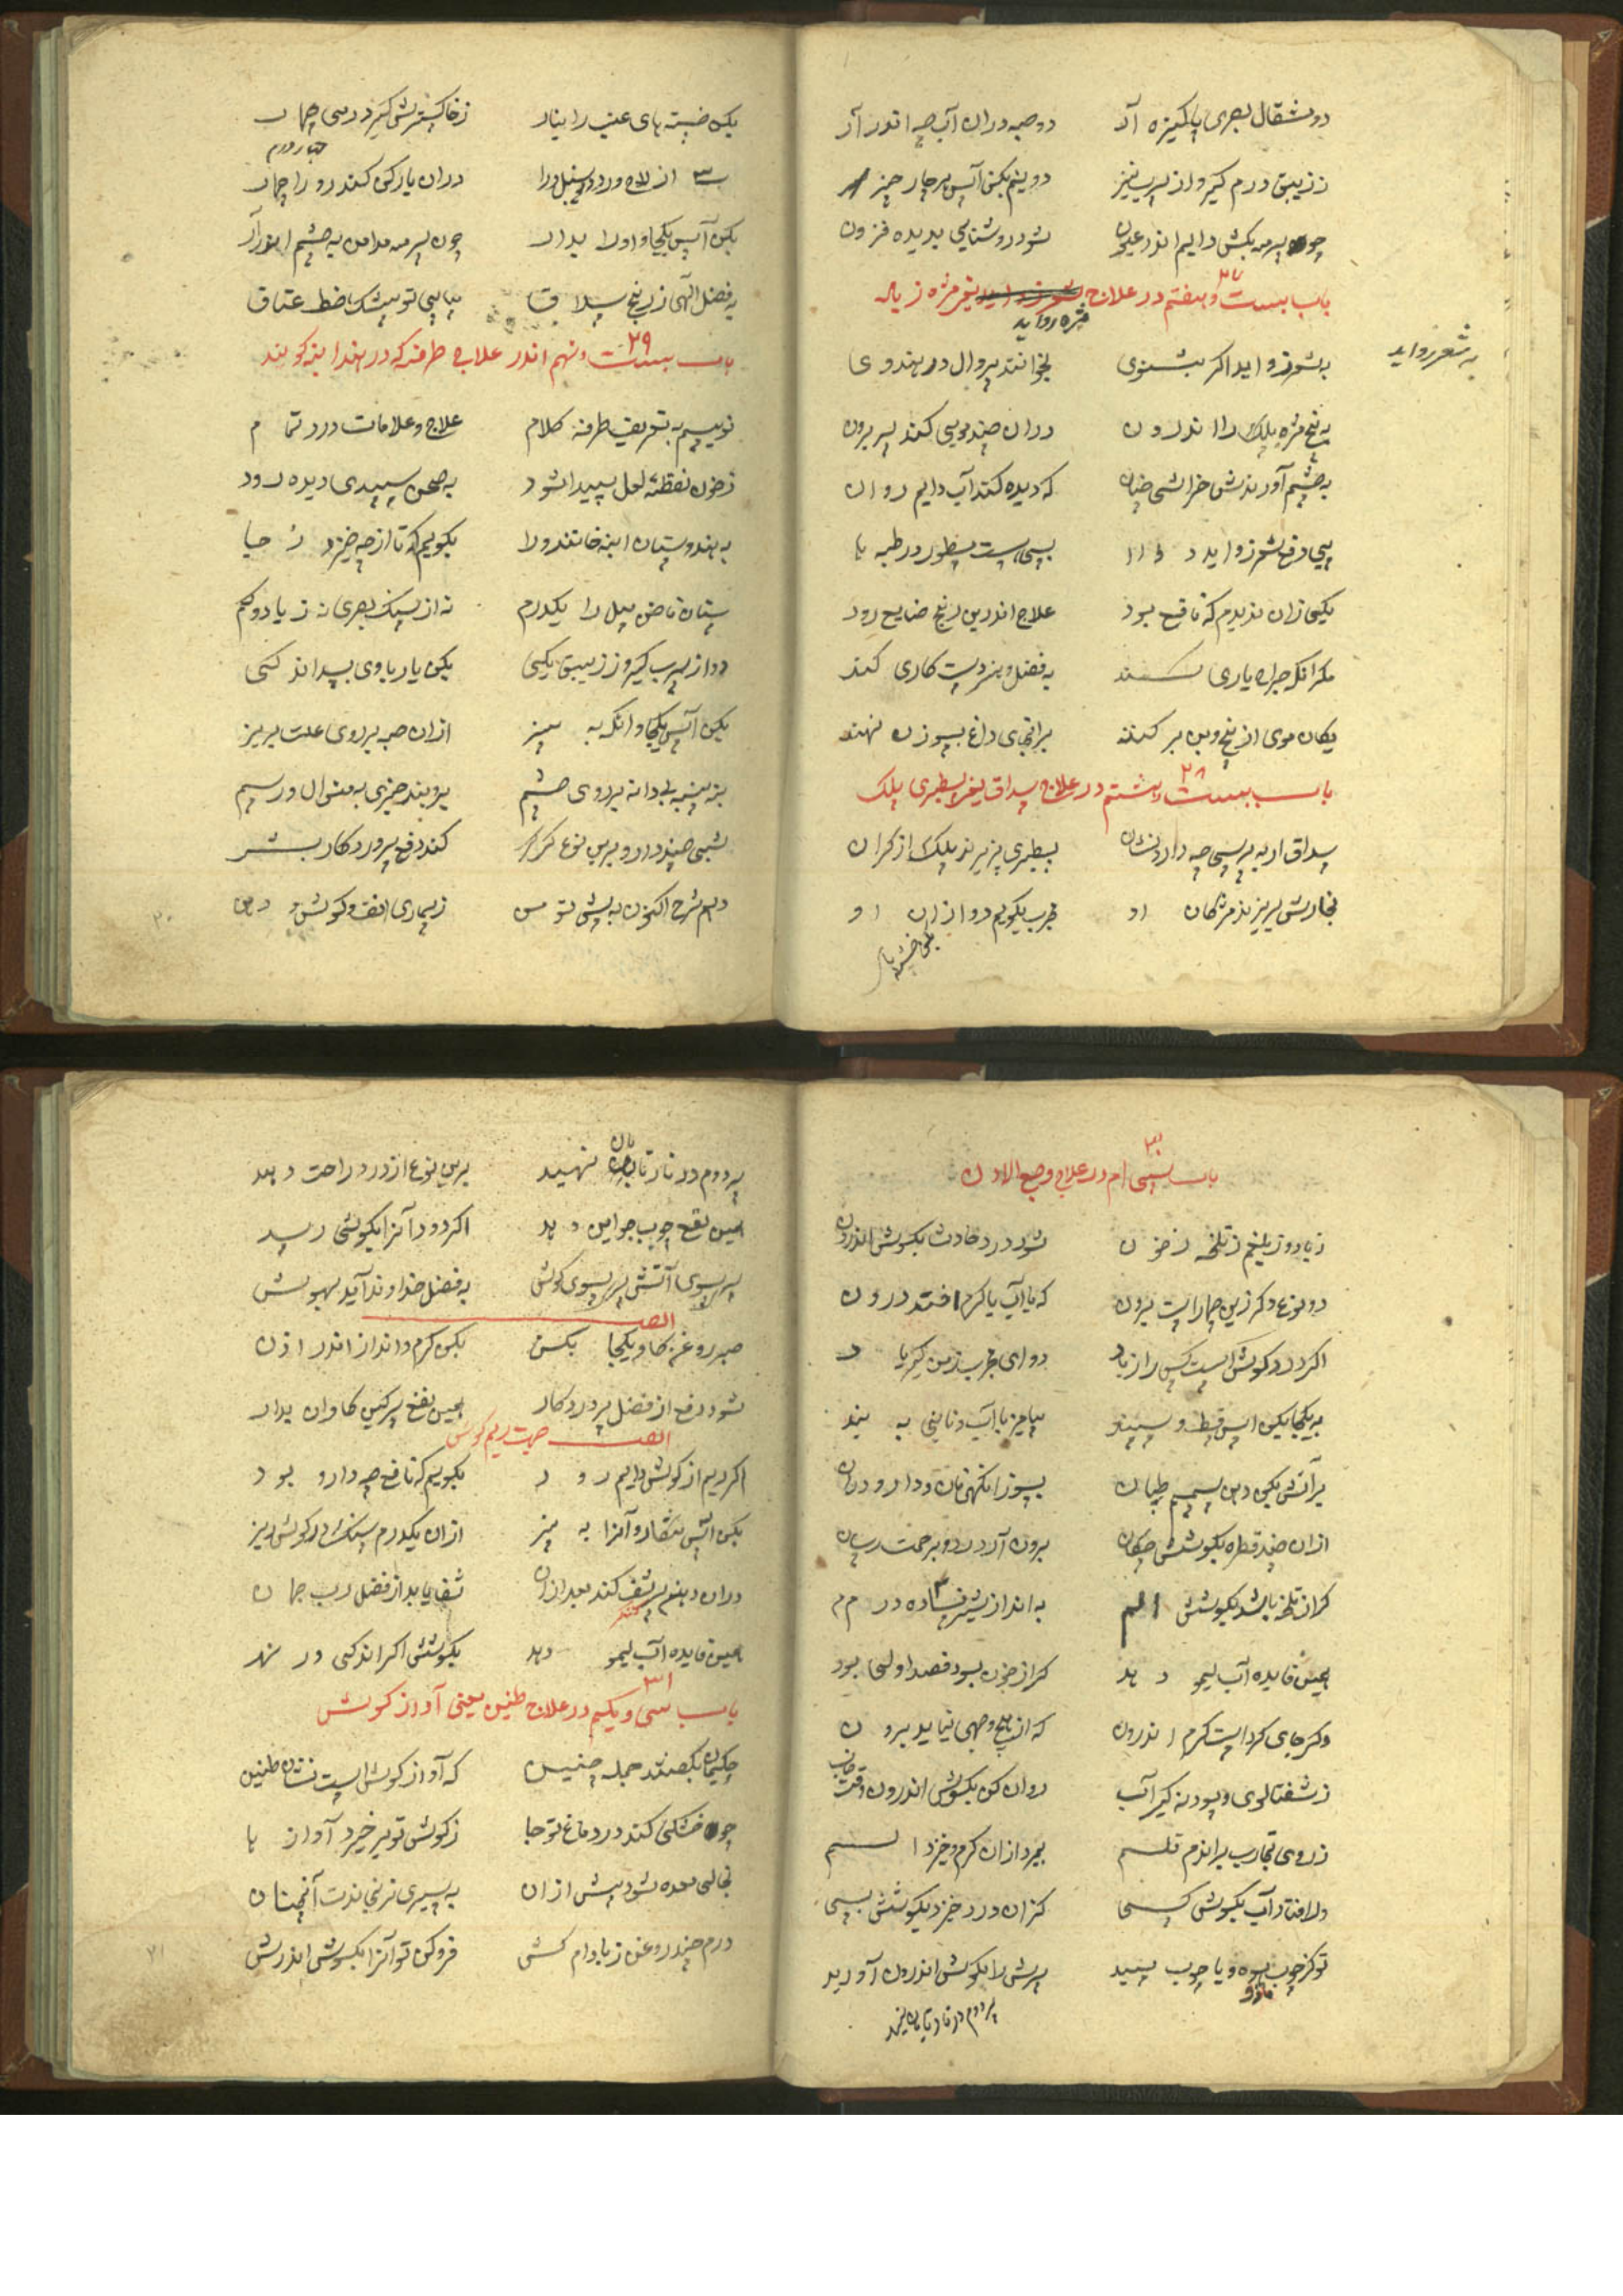 دو مثقال بصری پاکیزه آر دو حبه دران آب چه اندر آر
ز زیبق درم گیر و از سرب نیز دو نیم بکن آس هر چار چیز
چو سرمه بکش دایم اندر عیون شود روشنایی بدیده فزون
باب بیست و هفتم ۲۷ در علاج یعنی مژه زیاد
مژه رواید
به شعر رواید
به شعر زواید اگر بشنوی بخوانند پروال در هندوی
به پنج مژه پلک را اندرون دران چند مویی کند سر برون
به چشم آورندش خراشی چنان که دیده کند آب دایم روان
پی دفع شعر زواید دوا بسی است مسطور در طبها
یکی زان ندیدم که نافع بود علاج اندرین رنج ضایع رود
مگر آنکه جراح یاری کند به فضل و هنر دست کاری کند
یکان موی از بیخ و بن بر کنند بر انجای داغ بسوزن نهند
باب بیست و هشتم ۲۸ در علاج سلاق یعنی سطبری پلک
سلاق ار به پرسی چه دارد نشان سطبری پزیرند پلک از کران
بخارش بریزند مژگان او مجرب بگویم دوا زان او
یک خسته های عنب را بیار ز خاکسترش گیر درسی چهار
۳ از لاجورد و سنبل ورا دران یار کن کندرو را چهار
چهار درم
بکن آس یکجا و او را بدار چون سرمه مدامن به چشم اندر آر
به فضل الهی ز رنج سلاق بیابی تو بیشک خط عتاق
باب بیست و نهم ۲۹ اندر علاج طرفه که در هند ابنه گویند
نویسم به تعریف طرفه کلام علاج و علامات درد تمام
ز خون نقطئه لعل پیدا شود به صحن سپیدی دیده رود
به هندوستان ابنه خانند ورا بگویم که تا از چه خیزد ز جا
ستان ناخن پیل را یکدرم نه از سنک بصری نه زیاد و کم
دو از سرب گیر و ز زیبق یکی بکن یار با وی سداند کی
بکن آس یکجا و انگه به بیز ازان حبه بر روی علت بریز
بنه پنبه بی دانه بر روی چشم بروبند چیزی به منوال و رسم
شبی چند دارو برین نوع گزار کند دفع پروردکار بشر
دهم شرح اکنون به پیش تو من ز بیماری انف و گوش و دهن
باب سی ام ۳۰ در علاج وجع الاذن
ز باد و ز بلغم ز تلخه ز خون شود درد حادث بگوش اندرون
دو نوع دگر زین چهار است برون که یا آب یا کرم افتد درون
اکر درد گوش است کس را ز باد دوای مجرب ز من گیر یاد
به یکجا بکن آس قسط و سپند بیامیز با آب و نانی به بند
بر آتش بکن دهن سمسم طپان بسوز انگهی نان و دارو دران
ازان چند قطره بگوشش چکان برون آر درد و برحمت رسان
گر از تلخه باشد بگوشش الم به انداز شیر فساده درم
همین فایده آب لیمو دهد گر از خون بود فصد اولی بود
دگر جای کرد است کرم اندرون که از هیچ وجهی نیاید برون
ز شفتالوی و پودنه گیر آب روان کن بگوش اندرون وقت خاب
ز روی تجارب براندم قلم بمیرد ازان کرم و خیزد الم
ور افتاد آب بگوش کسی کزان درد خیزد بگوشش بسی
تو گز چوب و یا چوب بید سرش را بگوش اندرون آورید
پر دوم در نار تابان نهید
پر دوم در نار تابان نهید برین نوع از درد راحت دهد
همین نفع چوب جواین دهد اکر دود آنرا بگوشی رسد
سر سوی آتش سر سوی گوش به فضل خداوند آید بهوش
ایضا
صبر روغن گاو یکجا بکن بکن گرم و انداز اندر اذن
شود دفع از فضل پروردگار همین نفع سرگین گاوان بدار
ایضا جهت ریم گوش
اکر ریم از گوش دایم رود بگویم که نافع چه دارو بود
بکن آس شنقار و آنرا به بیز ازان یکدرم سنک در گوش ریز
دران دهنم سرشف کند بعد ازان شفا یابد از فضل رب جهان
همین فایده آب لیمو دهد بگوشش اکر اندکی در نهد
باب سی و یکم ۳۱ در علاج طنین یعنی آواز گوش
حکیمان بگفتند جمله چنین که آواز گوش است نشان طنین
چو خشکی کند در دماغ تو جا ز گوش تو بر خیزد آواز ها
بخالی معده شود بیش ازان به سیری نرنجاندت آنچنان
درم چند روغن ز بادام کش فرو کن تو آنرا بگوش اندرش